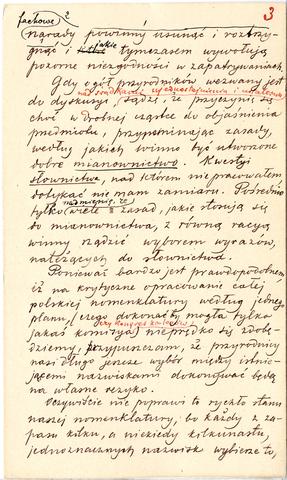 fachowe 2 3
narady powinny usunąć i roztrzy-
gnąć i jakie tymczasem wywołują
pozorne niezgodności w zapatrywaniach.
Gdy ogół przyrodników wezwany jest
nad
do dyskusyi, sądzę, że przyczynię się
choć w drobnej cząstce do objaśnienia
przedmiotu, przypominając zasady,
według jakich winno być utworzone
dobre mianownictwo. Kwestyi
słownictwa, nad którem nie pracowałem
dotykać nie mam zamiaru. Pośrednio
tylko nadmienię, że wiele z zasad, jakie stosują się
do mianownictwa, z równą racyą
winny rządzić wyborem wyrazów,
należących do słownictwa.
Ponieważ bardzo jest prawdopodobnem,
iż na krytyczne opracowanie całej
polskiej nomenklatury według jednego
planu, (czego dokonać by mogła tylko
jakaś komisya) nieprędko się zdobę-
czy kongres
dziemy, przypuszczam, że przyrodnicy
nasi długo jeszcze wybór między istnie-
jącemi nazwiskami dokonywać będą
na własne ryzyko.
Oczywiście nie poprawi to rychło stanu
naszej nomenklatury, bo każdy z za-
pasu kilku, a niekiedy kilkunastu,
jednoznacznych nazwisk wybierze to,